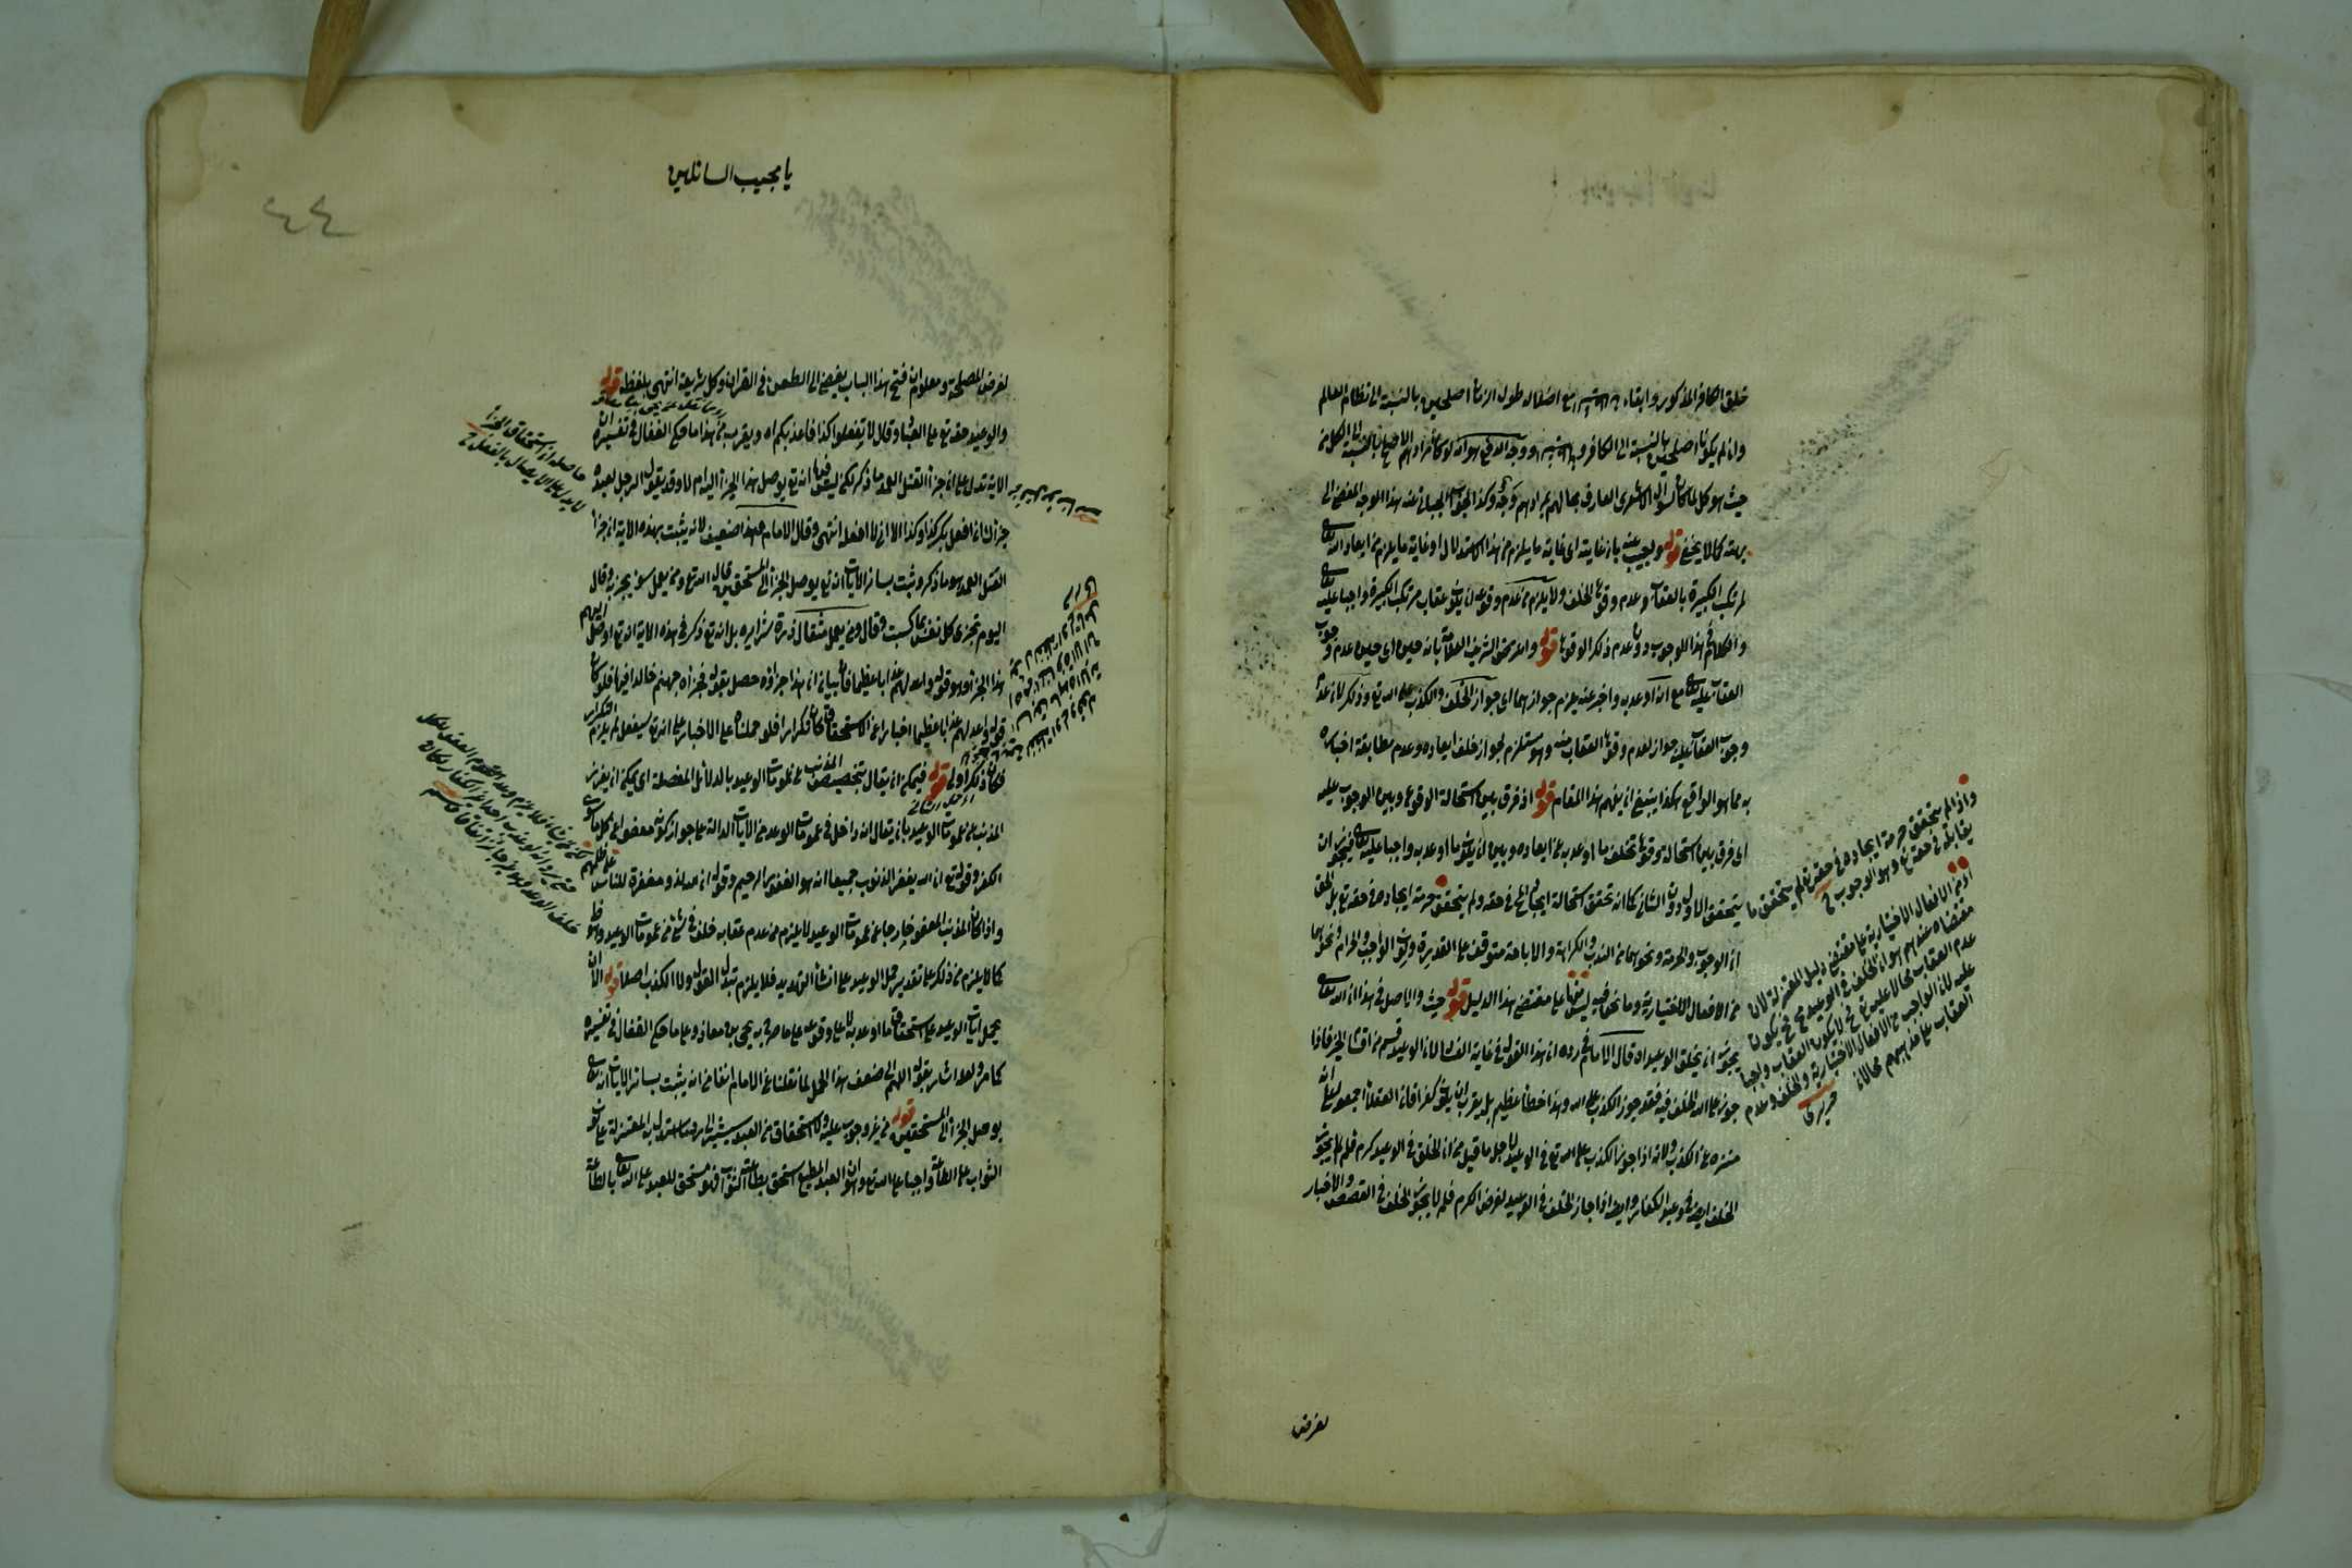 خلق الكافر المذكور وابقاء مع اضلاله طول الزمان اصلحين بالنسبة الى نظام العالم
وان لم يكونا اصلحين بالنسبة الى الكافر ووجه الدفع هو انه لو كان مرادهم الاصلح بالنسبة الى الكل من
حيث هو كل لما كان لسؤال الاشعرى العارف بحالهم بمرادهم وجه وكذا لجواب الجبائى عنه بهذا الوجه المفضى الى
بهته كما لا يخفى قوله ويجيب عنه بان غايته اى غاية ما يلزم من هذا الاستدلال او غاية ما يلزم من ايعاد الله تعالى
لمرتكب الكبيرة بالعقاب وعدم وقوع الخلف ولا يلزم من عدم وقوعه ان يكون عقاب مرتكب الكبيرة واجبا عليه تعالى
والكلام فى هذا الوجوب دون عدم ذكر الوقوع قوله واعترض الشريف العلامة بانه حين اى حين عدم وجوب
العقاب عليه تعالى مع انه اوعد به واخبر عنه يلزم جوازهما اى جواز الخلف والكذب على الله تع وذلك لان عدم
وجوب العقاب عليه جواز لعدم وقوع العقاب منه وهو مستلزم لجواز خلف ايعاده وعدم مطابقة اخباره
به مما هو الواقع هكذا ينبغى ان يفهم هذا المقام قوله اذ فرق بين استحالة الوقوع وبين الوجوب عليه
اى فرق بين استحالة وقوع تخلف ما اوعد به عن ايعاده وبين ان يكون ما اوعد به واجبا عليه تعالى فيجوز ان
يتحقق الاول دون الثانى كما انه تحقق استحالة ايجاد فى حقه ولم يتحقق حرمة ايجاده فى حقه تع بل الحق
ان الوجوب والحرمة ونحوهما من الندب والكراهة والاباحة متوقف على القدرة وكون الواجب والحرام ونحوهما
من الافعال الاختيارية وما نحن فيه ليس منها على مقتضى هذا الدليل قوله حيث والاصل فى هذا ان الله تعالى
يجوز ان يخلف الوعيد اه قال الامام فى رده ان هذا القول فى غاية الفساد لان الوعيد قسم من اقسام الخبر فاذا
جوز على الله الخلف فيه فقد جوز الكذب على الله وهذا خطأ عظيم بل يقرب ان يكون كفرا فان العقلاء اجمعوا على انه
منزه عن الكذب ولانه اذا جوز الكذب على الله تع فى الوعيد لاجل ما قيل من ان الخلف فى الوعيد كرم فلم لا يجوز
الخلف ايضا فى وعيد الكفار وايضا اذا جاز الخلف فى الوعيد لغرض الكرم فلم لا يجوز الخلف فى القصص والاخبار
واذا لم يتحقق حرمة ايجاده فى حقه تع لم يتحقق ما
يقابله فى حقه تع وهو الوجوب
اذ من الافعال الاختيارية على مقتضى دليل المعتزلة لان
مقتضاه عندهم هو ان الخلف فى الوعيد مح فيكون
عدم العقاب محالا عليه تع فلا يكون العقاب واجبا
عليه لان الواجب من الافعال الاختيارية والخلف وعدم
العقاب على مذهبهم محالان
لغرض
يا مجيب السائلين
٤٤
لغرض المصلحة ومعلوم ان فتح هذا الباب يفضى الى الطعن فى القران وكل شريعة انتهى بلفظه قوله
والوعيد حقه تع على العباد وقال لا تفعلوا كذا فاعذبكم اه ويقرب من هذا ما حكى القفال فى تفسيره ان
الاية تدل على ان جزاء القتل العمد ما ذكر لكن ليس فيها انه تع يوصل هذا الجزاء اليه ام لا وقد يقول الرجل لعبده
جزاؤك ان افعل بك كذا وكذا الا انى لا افعل انتهى وقال الامام هذا ضعيف لانه يثبت بهذه الاية ان جزاء
القتل العمد هو ما ذكر وثبت بسائر الايات انه تع يوصل الجزاء الى المستحقين قال الله تع ومن يعمل سوء يجز به وقال
اليوم تجزى كل نفس بما كسبت وقال ومن يعمل مثقال ذرة شرا يره بل انه تع ذكر فى هذه الاية انه تع اوصل اليهم
هذا الجزاء وهو قوله واعد لهم عذابا عظيما فان بيان ان هذا جزاؤه حصل بقوله فجزاؤه جهنم خالدا فيها فلو كان
قوله واعد لهم عذابا عظيما اخبارا عن الاستحقاق كان تكرارا فلو حملناه على الاخبار على انه تع سيفعل لم يلزم التكرار
فكان ذلك اولى قوله فيمكن ان يقال بتخصيص المذنب عن عمومات الوعيد بالدلائل المفصلة اى يمكن ان يفرز
المذنب عن عمومات الوعيد بان يقال انه داخل فى عمومات الوعد من الايات الدالة على جواز كونه معفوا عن كل ما سوى
الكفر وقوله تع ان الله يغفر الذنوب جميعا انه هو الغفور الرحيم وقوله ان الله لذو مغفرة للناس على ظلمهم
واذا كان المذنب المعفو خارجا عن عمومات الوعيد لا يلزم من عدم عقابه خلف فى شئ من عمومات الوعيد وهو ظ
كما لا يلزم من ذلك على تقدير حمل الوعيد على انشاء التهديد فلا يلزم تبدل القول ولا الكذب اصلا قوله الا ان
يحمل ايات الوعيد على استحقاق ما اوعد به لا على وقوعه على ما صرح به يحيى بن معاذ وعلى ما حكى القفال فى تفسيره
كما مر ولعله اشار بقوله اللهم الى ضعف هذا الحمل لما نقلنا عن الامام انفا من انه يثبت بسائر الايات انه تعالى
يوصل الجزاء الى المستحقين قوله من غير وجوب عليه ولا استحقاق من العبد يشير الى رد ما استدل به المعتزلة على كون
الثواب على الطاعة واجبا على الله تع وهو ان العبد المطيع استحق بطاعته الثواب فهو مستحق للعبد على الله تعالى بالطاعة
حاصله ان استحقاق الجزاء
لا يدل على الايصال بالفعل